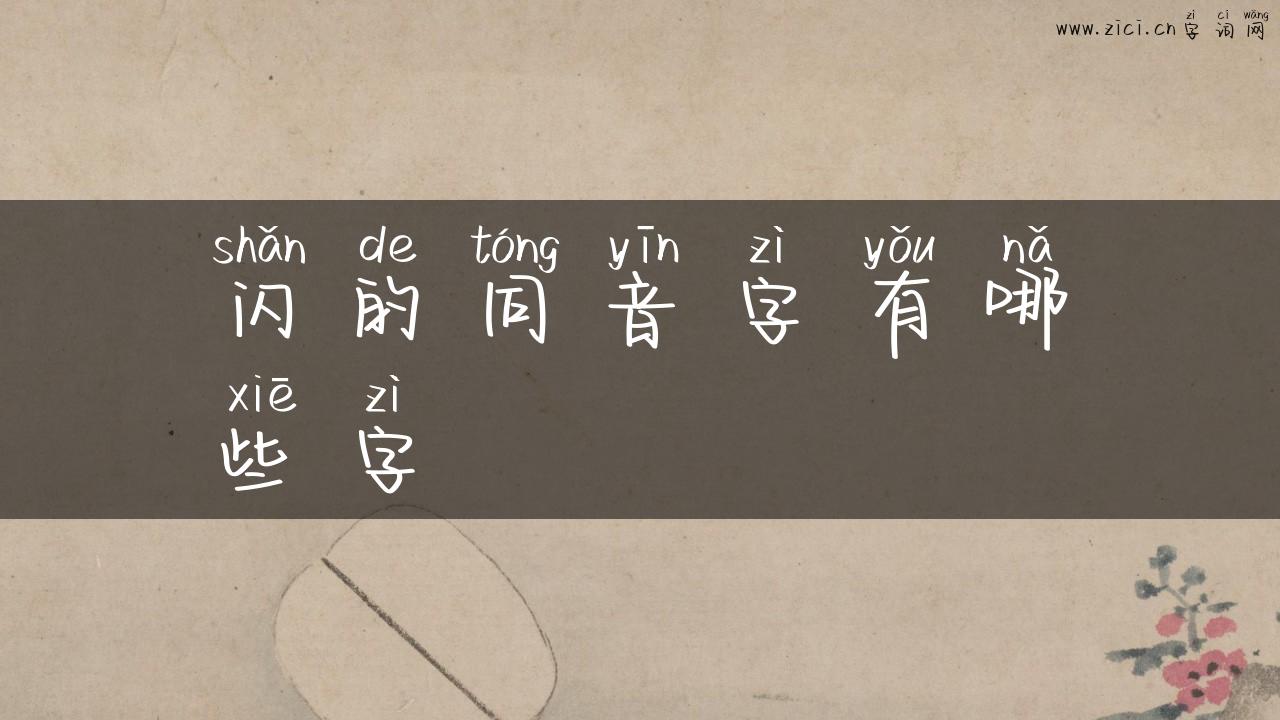 zì cí wǎng
www.zici.cn 字词网
shǎn de tóng yīn zì yǒu nǎ
闪的同音字有哪
xiē zì
些字